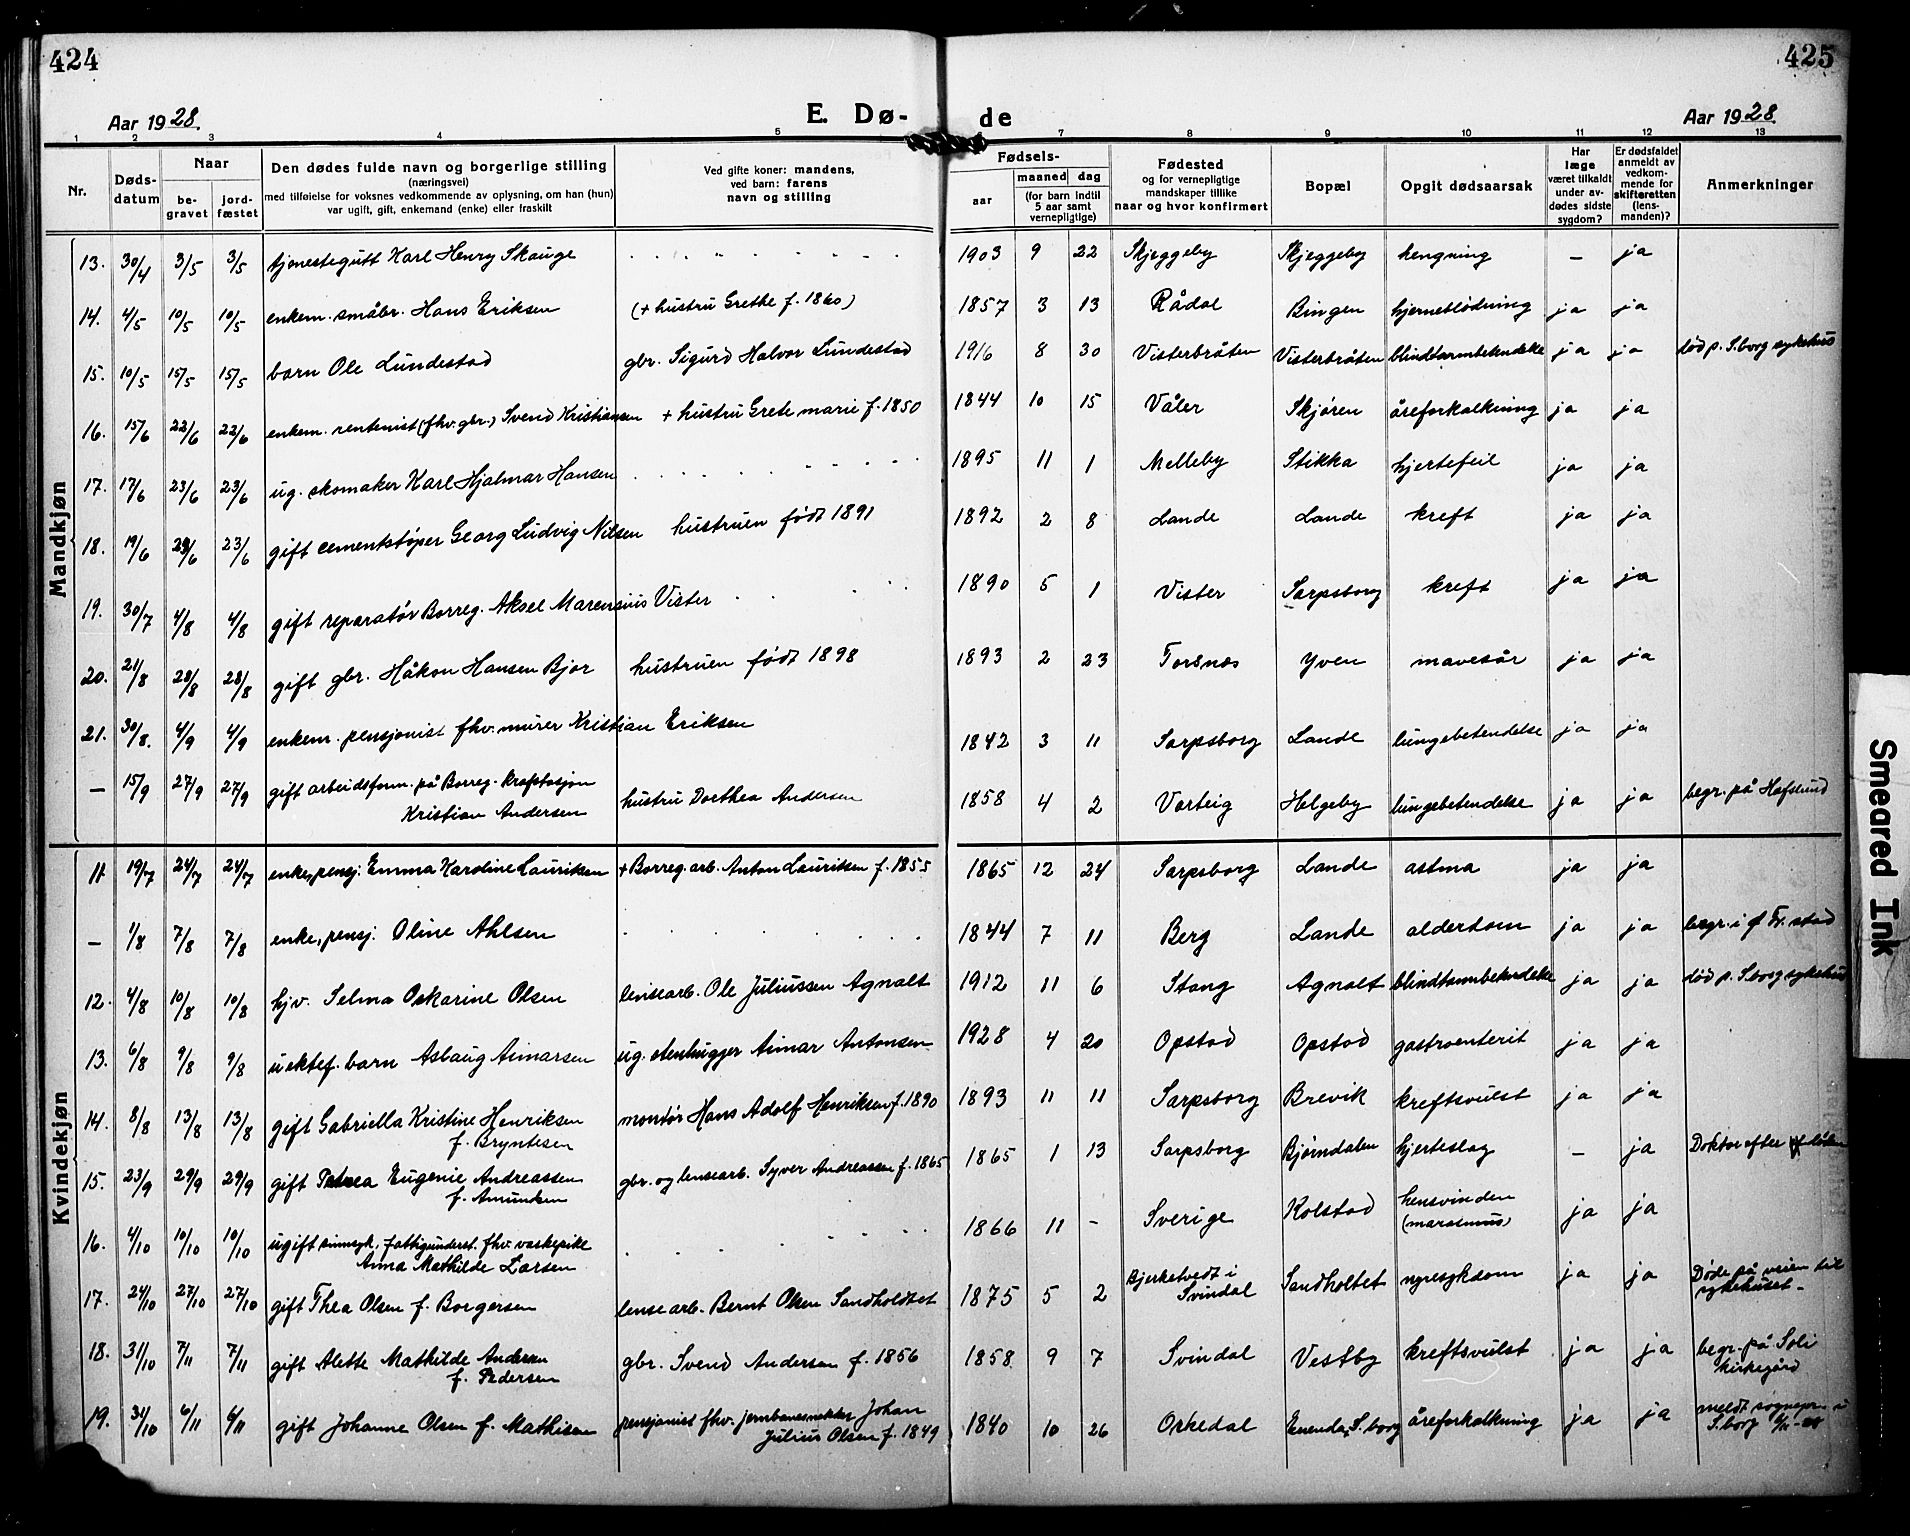 424
425
Aar 1928.
E. Dø-
de
Aar 1928
1 2 3 4 5 7 8 9 10 11 12 13
Nr.
Døds-
datum
Naar
be-
gravet
jord-
fæstet
Den dødes fulde navn og borgerlige stilling
(næringsvei)
med tilføielse for voksnes vedkommende av oplysning, om han (hun)
var ugift, gift, enkemand (enke) eller fraskilt
Ved gifte koner: mandens,
ved barn: farens
navn og stilling
Fødsels-
aar
maaned dag
(for barn indtil
5 aar samt
vernepligtige)
Fødested
og for vernepligtige
mandskaper tillike
naar og hvor konfirmert
Bopæl
Opgit dødsaarsak
Har
læge
været tilkaldt
under av-
dødes sidste
sygdom?
Er dødsfaldet
anmeldt av
vedkom-
mende for
skifteretten
(lens-
manden)?
Anmerkninger
Mandkjøn
13. 30/4 3/5 3/5 tjenestegutt Karl Henry Skauge 1903 9 22 Skjeggeby Skjeggeby hengning – ja
14. 4/5 10/5 10/5 enkem. småbr. Hans Eriksen (+ hustru Grethe f. 1860) 1857 3 13 Rådal Bingen hjerneblødning ja ja
15. 10/5 15/5 15/5 barn Ole Lundestad gbr. Sigurd Halvor Lundestad 1916 8 30 Visterbråten Visterbråten blindtarmbetendelse ja ja død p. S.borg sykehus
16. 15/6 22/6 22/6 enkem. rentenist (fhv. gbr.) Svend Kristiansen + hustru Grete marie f. 1850 1844 10 15 Våler Skjøren åreforkalkning ja ja
17. 17/6 23/6 23/6 ug. skomaker Karl Hjalmar Hansen 1895 11 1 Melleby Stikka hjertefeil ja ja
18. 19/6 23/6 23/6 gift cementstøper Georg Ludvig Nilsen hustruen født 1891 1892 2 8 Lande Lande kreft ja ja
19. 30/7 4/8 4/8 gift reparatør Borreg. Aksel Marensius Vister 1890 5 1 Vister Sarpsborg kreft ja ja
20. 21/8 28/8 28/8 gift gbr. Håkon Hansen Bjor hustruen født 1898 1893 2 23 Torsnes Yven mavesår ja ja
21. 30/8. 4/9 4/9 enkem. pensjonist fhv. murer Kristian Eriksen 1842 3 11 Sarpsborg Lande lungebetendelse ja ja
– 15/9 27/9 27/9 gift arbeidsform. på Borreg. kraftstasjon
Kristian Andersen hustru Dorthea Andersen 1858 4 2 Varteig Helgeby lungebetendelse ja ja begr. på Hafslund
Kvindekjøn
11 19/7 24/7 24/7 enke, pensj. Emma Karoline Lauritsen + Borreg. arb. Anton Lauritsen f. 1855 1865 12 24 Sarpsborg Lande astma ja ja
– 1/8 7/8 7/8 enke, pensj. Oline Ahlsen 1844 7 11 Berg Lande alderdom ja ja begr. i ø Fr. stad
12. 4/8 10/8 10/8 hjv. Selma Oskarine Olsen lensearb. Ole Juliussen Agnalt 1912 11 6 Stang Agnalt blindtarmbetendelse ja ja død p. S.borg sykehus
13. 6/8 9/8 9/8 uektef. barn Asbaug Aimarsen ug. stenhugger Aimar Antonsen 1928 4 20 Opstad Opstad gastroenterit ja ja
14. 8/8 13/8 13/8 gift Gabriella Kristine Henriksen
f. Bryntesen montør Hans Adolf Henriksen f. 1890 1893 11 11 Sarpsborg Brevik kreftsvulst ja ja
15. 23/9 29/9 29/9 gift Petrea Eugenie Andreassen
f. Amundsen gbr. og lensearb. Syver Andreassen f. 1865 1865 1 13 Sarpsborg Bjørndalen hjerteslag – ja Doktor efter døden
16. 4/10 10/10 10/10 ugift sinnsyk, fattigunderst. fhv. vaskepike
Anna Mathilde Larsen 1866 11 – Sverige Kolstad hensvinden
(marasmus) ja ja
17. 24/10 27/10 27/10 gift Thea Olsen f. Borgersen lensearb. Bernt Olsen Sandholdtet 1875 5 2 Bjerketvedt i
Svindal Sandholtet nyresykdom ja ja Døde på veien til
sykehuset –
18. 31/10 7/11 7/11 gift Alette Mathilde Andersen
f. Pedersen gbr. Svend Andersen f. 1856 1858 9 7 Svindal Vestby kreftsvulst ja ja begr. på Soli
kirkegård
19. 31/10 6/11 6/11 gift Johanne Olsen f. Mathisen pensjonist fhv. jernbanesnekker Johan
Julius Olsen f. 1849 1840 10 26 Orkedal S.borg åreforkalkning ja ja meldt sognepr. i
S.borg
Smeared Ink